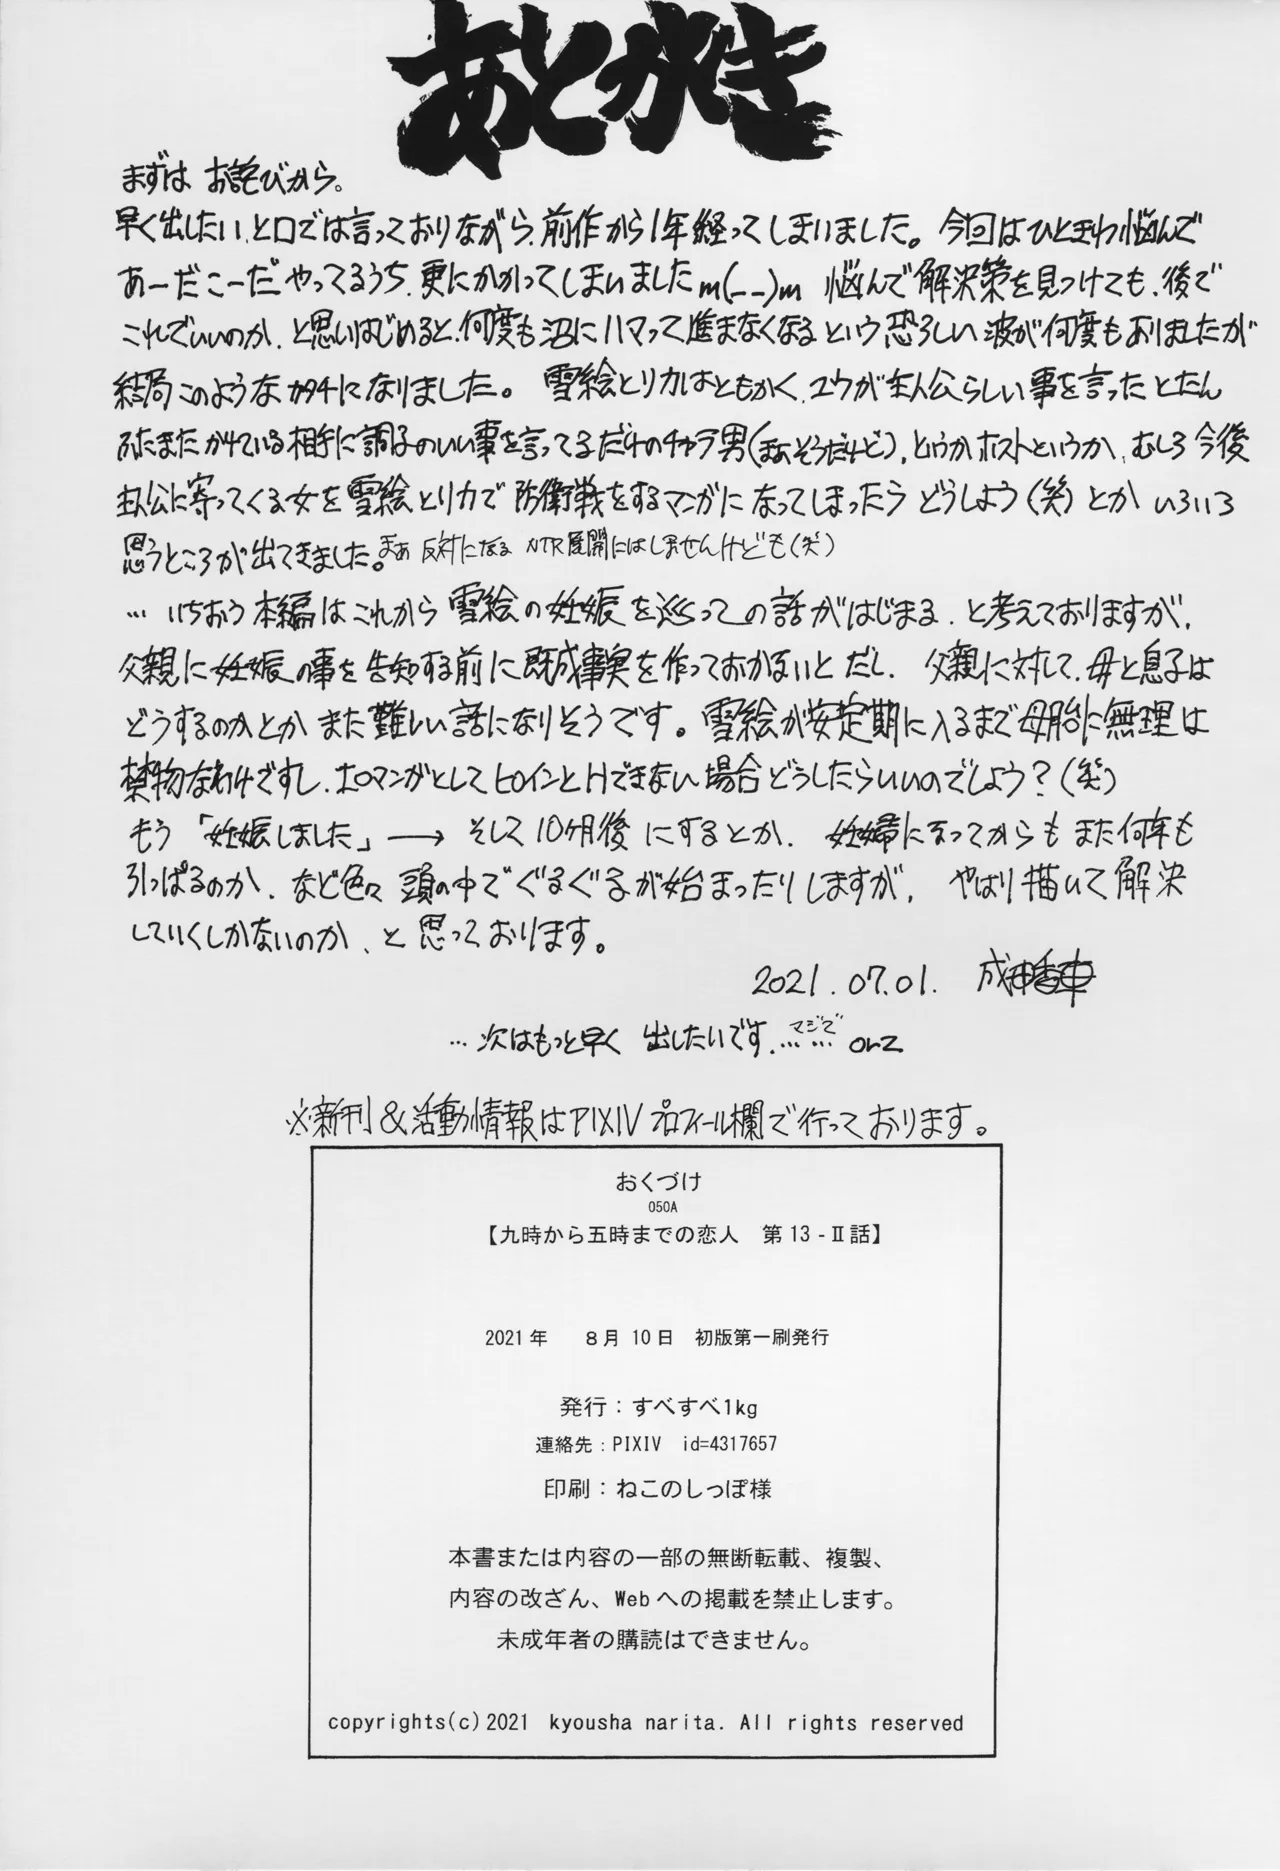 あとがき
まずは お詫びから。
早く出したい、と口では言っておりながら、前作から1年経ってしまいました。今回はひときわ悩んで
あーだこーだやってるうち、更にかかってしまいましたm(_ _)m 悩んで解決策を見つけても、後で
これでいいのか、と思いはじめると、何度も沼にハマって進まなくなるという恐ろしい波が何度もありましたが
結局このようなカタチになりました。 雪絵とリカはともかく、ユウが主人公らしい事を言ったとたん
ふたまたかけている相手に調子のいい事を言ってるだけのチャラ男(まあそうだけど)、というかホストというか、むしろ今後
主人公に寄ってくる女を雪絵とリカで防衛戦をするマンガになってしまったらどうしよう(笑)とか いろいろ
思うところが出てきました。まぁ 反対になる NTR展開にはしませんけども(笑)
… いちおう本編はこれから雪絵の妊娠を巡っての話がはじまる、と考えておりますが、
父親に妊娠の事を告知する前に既成事実を作っておかないとだし、 父親に対して、母と息子は
どうするのかとか また難しい話になりそうです。雪絵が安定期に入るまで母胎に無理は
禁物なわけですし、エロマンガとしてヒロインとHできない場合どうしたらいいのでしょう?(笑)
もう 「妊娠しました」→ そして10ヶ月後 にするとか、 妊婦に至ってからもまた何年も
引っぱるのか、など色々 頭の中でぐるぐるが始まったりしますが、 やはり描いて解決
していくしかないのか、と思っております。
2021.07.01. 成田香車
… 次はもっと早く 出したいです、マジで…… orz
※新刊&活動情報はPIXIVプロフィール欄で行っております。
おくづけ
050A
【九時から五時までの恋人 第13-Ⅱ話】
2021年 8月10日 初版第一刷発行
発行:すべすべ1kg
連絡先:PIXIV id=4317657
印刷:ねこのしっぽ様
本書または内容の一部の無断転載、複製、
内容の改ざん、Webへの掲載を禁止します。
未成年者の購読はできません。
copyrights(c)2021 kyousha narita. All rights reserved